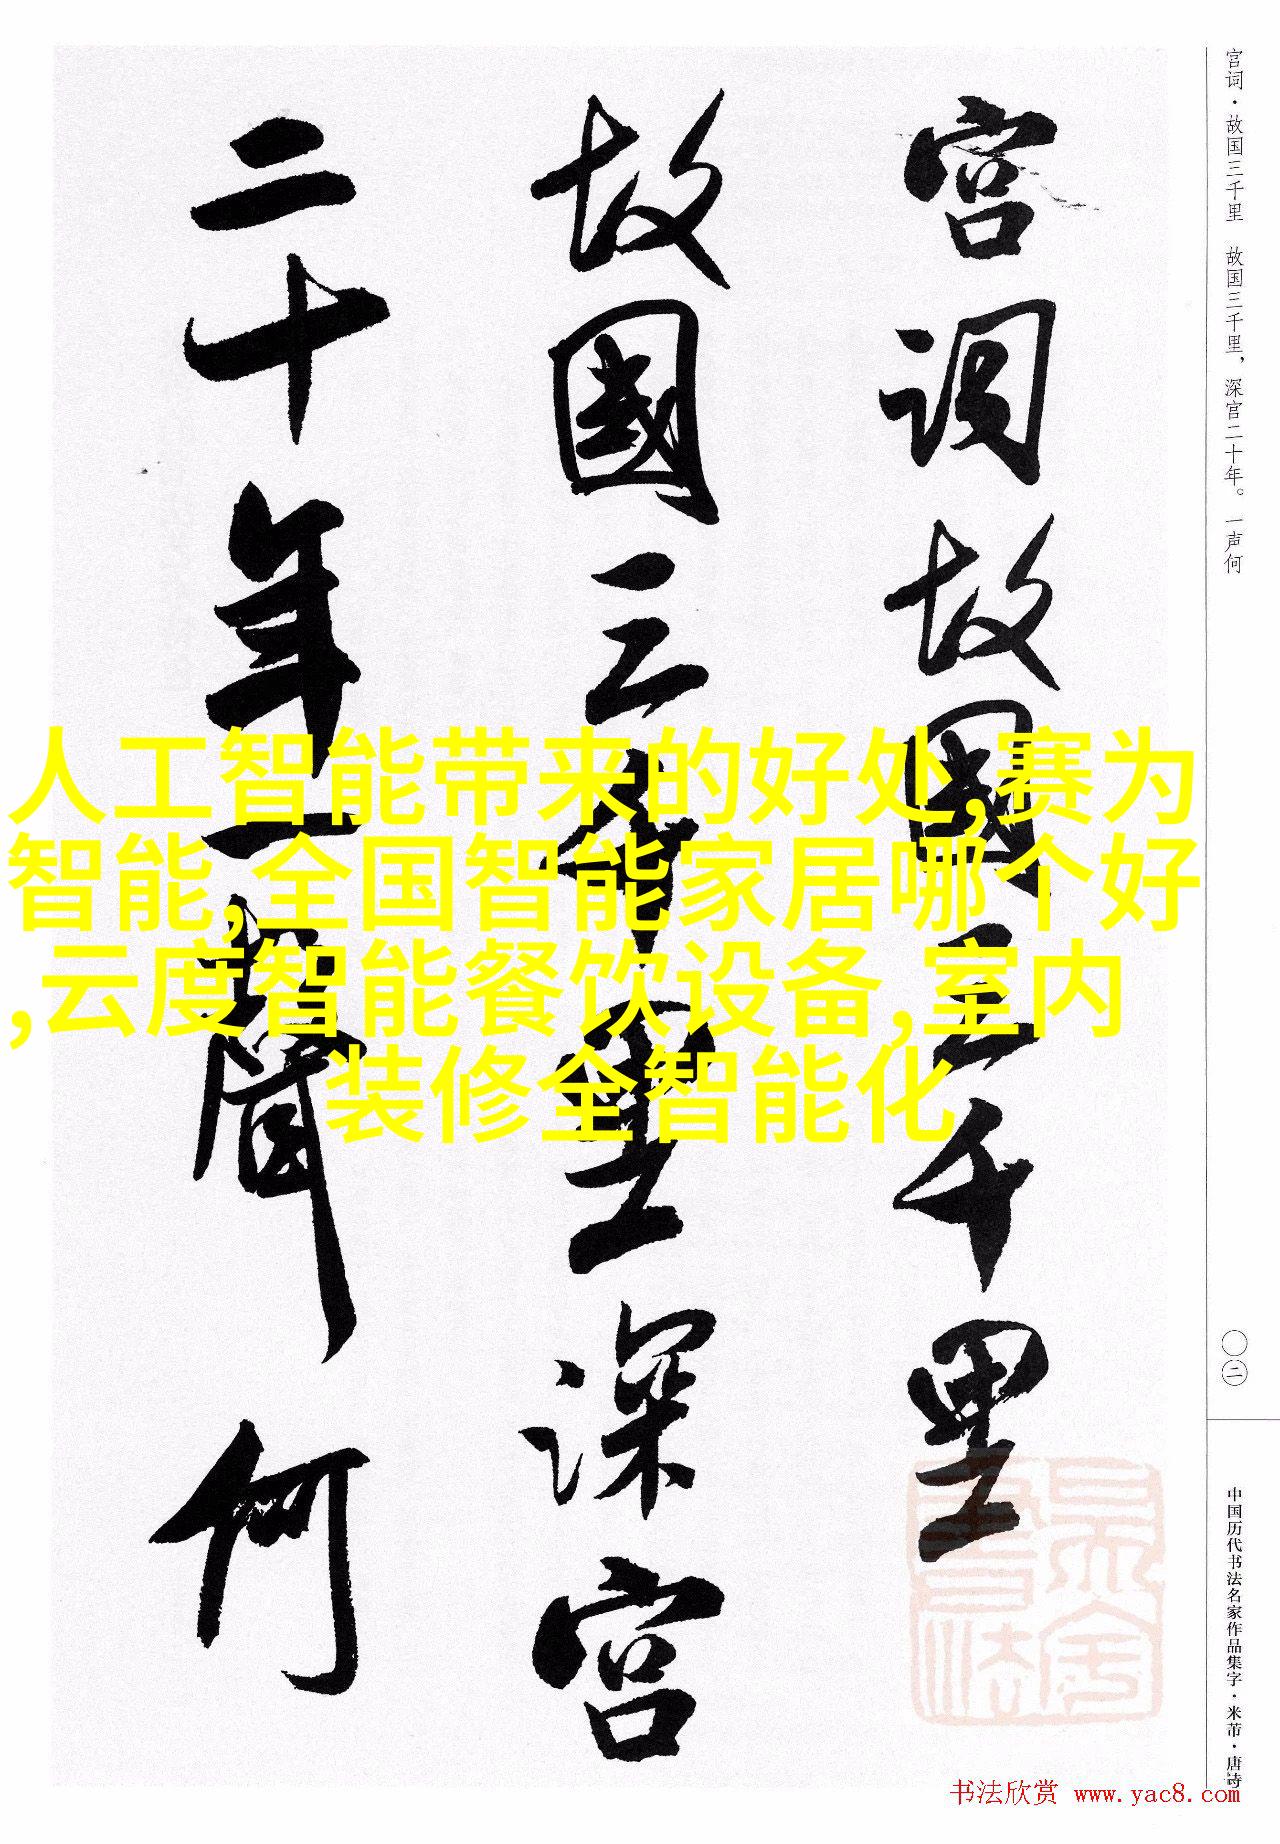 宫词·故国三千里　故国三千里，深宫二十年。一声何
宫词故國三千里
故國三千里深宫
二十年一聲何
人工智能带来的好处,赛为
智能,全国智能家居哪个好
,云度智能餐饮设备,室内
装修全智能化
〇二
中国历代书法名家作品集字·米芾·唐诗
书法欣赏 www.yac8.com